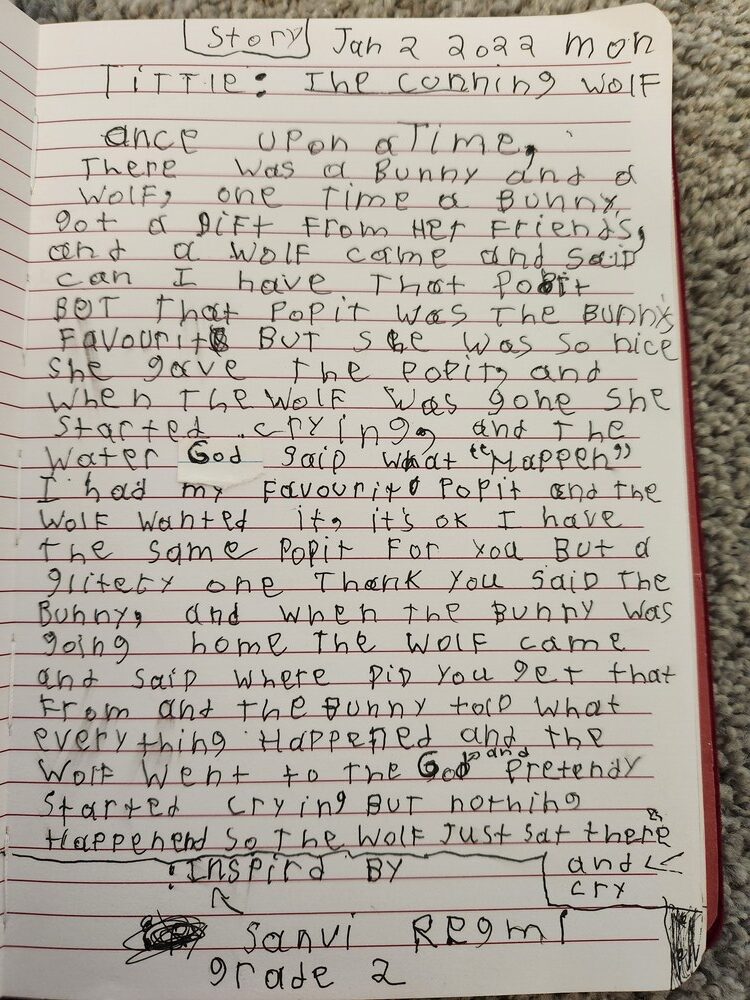 Story Jan 2 2022 mon
TITTle: The cunning wolf
ance upon a Time,
There was a Bunny and a
Wolf, one Time a Bunny
got a gift from Her Friends,
and a wolf came and said
can I have That Popit
BOT That Popit was The Bunnys
Favourite BuT she was so nice
She gave The Popit, and
when The Wolf was gone She
Started crying, and The
Water God said what "Happen"
I had my Favourit Popit and the
Wolf wanted it, it's ok I have
The same Popit For you But a
glitery one Thank You Said The
Bunny, and when the Bunny was
going home The Wolf came
and Said where Did you get that
From and The Bunny told what
everything Happened and the
Wolf Went to the God and Pretendy
Started crying But nothing
Happenend So The Wolf Just Sat there
and
cry
:Inspird By
Sanvi Regmi
grade 2